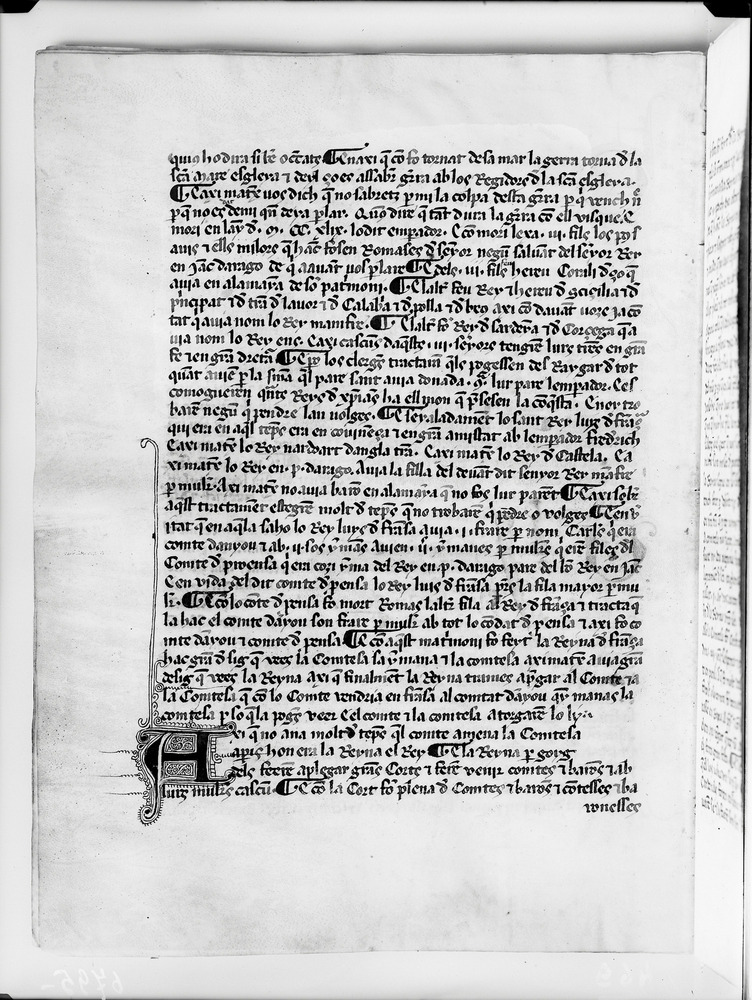 quiu ho dira si be o cetats ¶ E naxi q̄ cō fo tornat desa mar la gerra torna d̄ la
scā mare esgleya ⁊ de yl ço es assabr̄ gr̄ra ab los Regidors d̄ la scā esgleya.
¶ E axi matex̄ uos dich q̄ no sabretz p̄ mi la colpa desta gr̄ra p̄ q̄ vench n̄
p̄ q̄ no es demi qn̄ deya p̄lar. Quo dire q̄ tāt dura la gr̄ra cō ell visque. E
mori en lay d̄. M. CC. xlix. lo dit empador. E cō mori lexa .iii. fils los pus
auis ⁊ ells milors q̄ hāc fossen Romases d̄ seyor negu saluant del seyor Rey
en Jac̄ darago de q̄ aauāt uos p̄lare ¶ E dels .iii. fils hereu Conrh d̄ ço q̄
auia en alamaya de so pat̄moni. ¶ E laltr̄ feu Rey ⁊ hereu d̄ Scicilia ⁊ d̄
p̄ncipat ⁊ d̄ tr̄a d̄ lauor ⁊ d̄ Calab̄a ⁊ d̄ polla ⁊ d̄ bro axi cō dauāt uos ja cō
tat q̄ auia nom lo Rey manfre. ¶ E laltr̄ fo Rey d̄ Sardeya ⁊ d̄ Corcega q̄ a
uia nom lo Rey ens. E axi cascus daq̄sts .iii. seyors tengren lurs tr̄es en grā
fe ⁊ en grā dretā ¶ E p̄o los clergs tractarā q̄ls pogessen des Raygar d̄ tot
quāt auiē p̄ la smā q̄l pare sant auia donada .ꝯ. lur pare lemp̄ador. E es
comogueren qn̄ts Reys d̄ xp̄ians ha el mon q̄ p̄sesen la cōq̄sta. E no y tro
baren negu q̄ pendre lan volges. ¶ E seyaladament lo sant Rey luys d̄ frāça
qui era en aq̄l temps era en couinēça ⁊ en grā amistat ab lemp̄ador Fredrich
E axi matex̄ lo Rey nardoart dangla tr̄a. E axi matex̄ lo Rey d̄ Castela. E a
xi matex̄ lo Rey en .p. darago. Auia la filla del deuāt dit senyor Rey māfre
p̄ mulr̄. Axi matex̄ no auia baro en alamaya q̄ no fos lur parēt ¶ E axi sobr̄
aq̄st tractament estegrē molt d̄ temps q̄ no trobarē q̄ p̄edre o volges ¶ E en v̄
itat q̄ en aq̄la saho lo Rey luys d̄ fransa auia .i. frare p̄ nom Carls q̄ era
comte danyou ⁊ ab .ii. sos y̴mas auien .ii. y̴manes p̄ mulrs q̄ erē filles dl̄
Comte d̄ proensa q̄ era cori y̴ma del Rey en .p. darago pare del bō Rey en Jac̄
E en vida del dit comte d̄ p̄ensa lo Rey luis d̄ frāsa p̄rs la fila mayor p̄ mu
lr̄. ¶ E cō lo cōte d̄ p̄ensa fo mort Romas laltr̄ fila al Rey d̄ frāça ⁊ tracta q̄
la hac el comte dāyou son frare p̄ mulr̄ ab tot lo cōdat d̄ p̄ensa ⁊ axi fo co
mte dāyou ⁊ comte d̄ p̄ensa ¶ E cō aq̄st mat̄moni fo feyt la Reyna d̄ frāça
hac grā d̄sig q̄ vees la Comtesa sa y̴mana ⁊ la comtesa axi matex̄ auia grā
desig q̄ vees la Reyna Axi q̄ finalmēt la Reyna trames apgar al Comte ⁊ a
la Comtesa q̄ cō lo Comte vendria en frāsa al comtat dāyou qy̴ manas la
comtesa p̄ so q̄ la pogs veer E el comte ⁊ la comtesa atorgarē lo ly
Axi q̄ no ana molt d̄ temps q̄l comte amena la Comtesa
a paris hon era la Reyna el Rey ¶ E la Reyna p̄ gorg
dels feeren apleggar grās Corts ⁊ ferē venir comtes ⁊ barōs ⁊ ab
lurs mulrs cascū. ¶ E cō la Cort fo plena d̄ Comtes ⁊ barōs ⁊ cōtesses ⁊ ba
ronesses